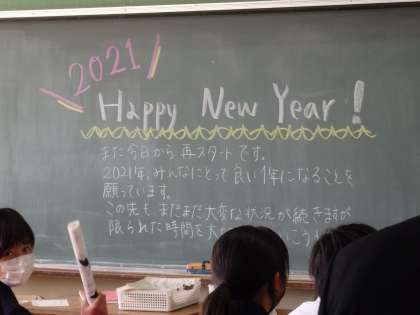 2021
Happy New Year!
また今日から再スタートです。
2021年、みんなにとって良い1年になることを
願っています。
この先も まだまだ大変な状況が続きますが
限られた時間を大